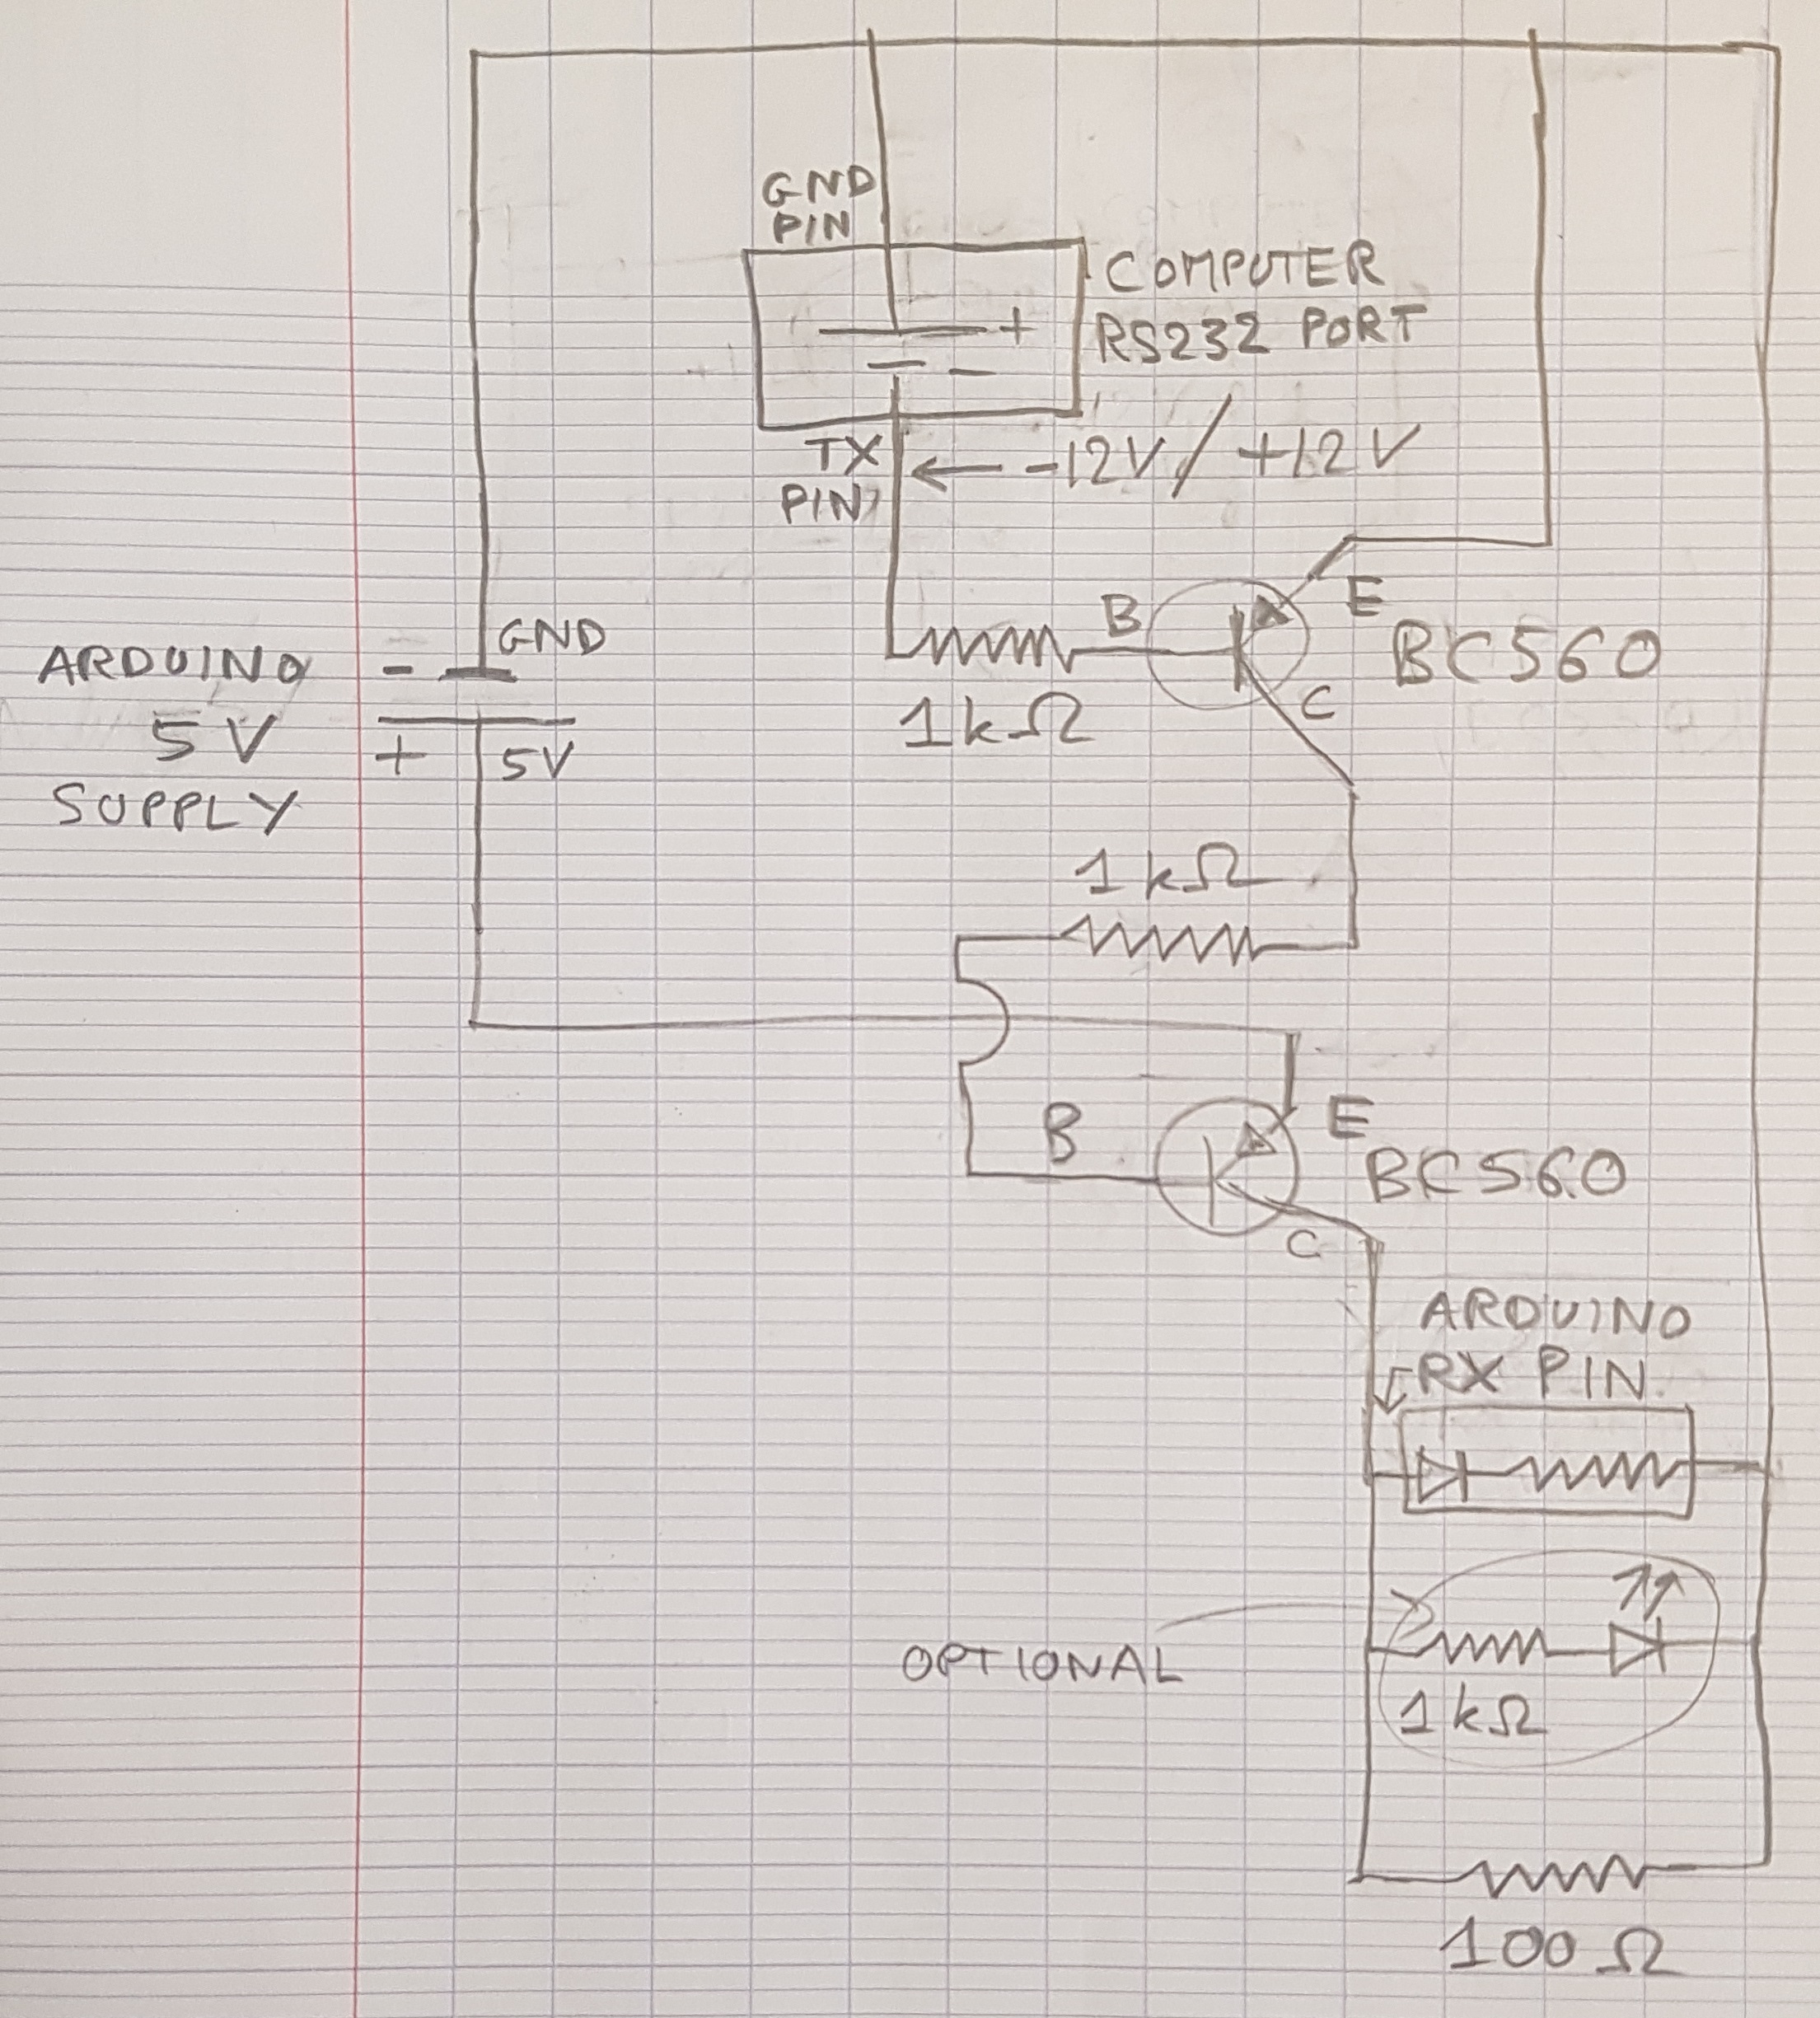 GND
PIN
COMPUTER
RS232 PORT
+
-
TX
PIN
← -12V / +12V
ARDUINO
5V
SUPPLY
- GND
+ 5V
B
E
C
BC560
1kΩ
1kΩ
B
E
C
BC560
ARDUINO
RX PIN
OPTIONAL
1kΩ
100Ω